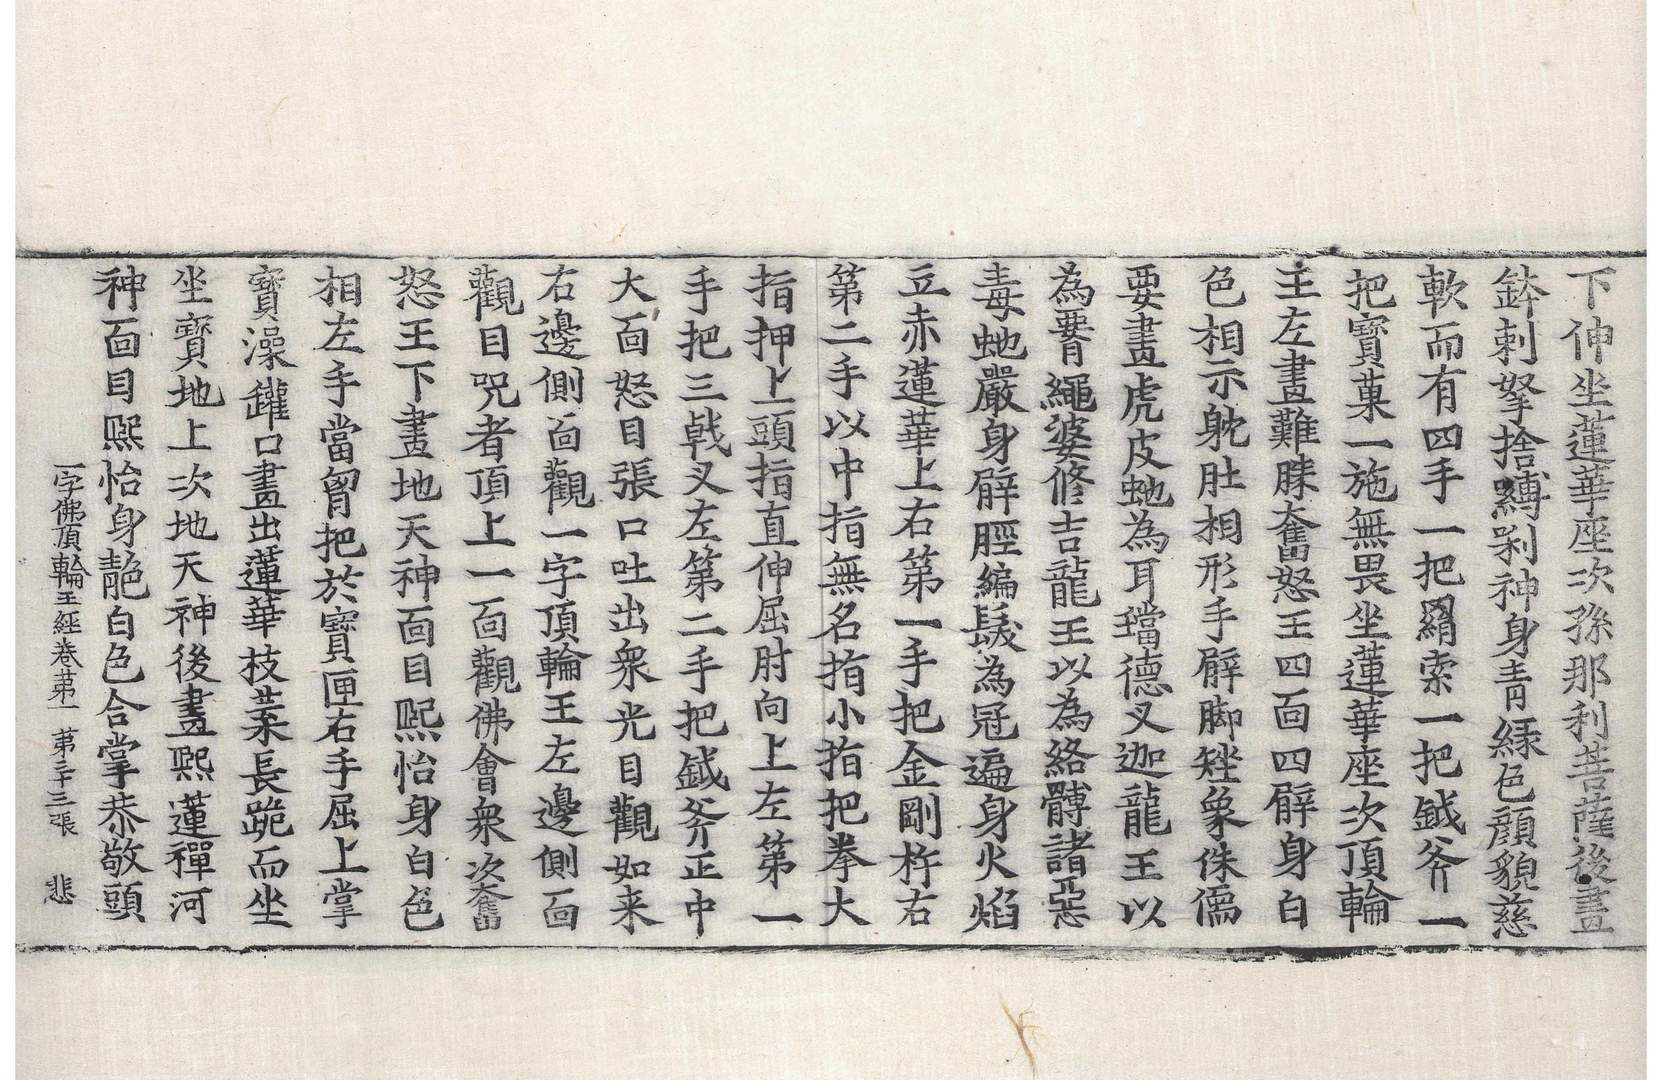 下伸坐蓮華座次孫那利菩薩後畫
鉢剌拏捨縛剁神身青綠色顏貌慈
軟而有四手一把羂索一把鉞斧一
把寶菓一施無畏坐蓮華座次頂輪
王左畫難勝奮怒王四面四臂身白
色相示躭肚相形手臂脚矬象侏儒
要畫虎皮虵為耳璫德叉迦龍王以
為䙅繩婆修吉龍王以為絡髆諸惡
毒虵嚴身臂脛編髮為冠遍身火焰
立赤蓮華上右第一手把金剛杵右
第二手以中指無名指小指把拳大
指押上頭指直伸屈肘向上左第一
手把三戟叉左第二手把鉞斧正中
大面怒目張口吐出衆光目觀如来
右邊側面觀一字頂輪王左邊側面
觀目呪者頂上一面觀佛會衆次奮
怒王下畫地天神面目熙怡身白色
相左手當胷把於寶匣右手屈上掌
寶澡罐口畫出蓮華枝葉長跪而坐
坐寶地上次地天神後畫熙蓮禪河
神面目熙怡身艶白色合掌恭敬頭
一字佛頂輪王經卷第一　第二十三張　悲